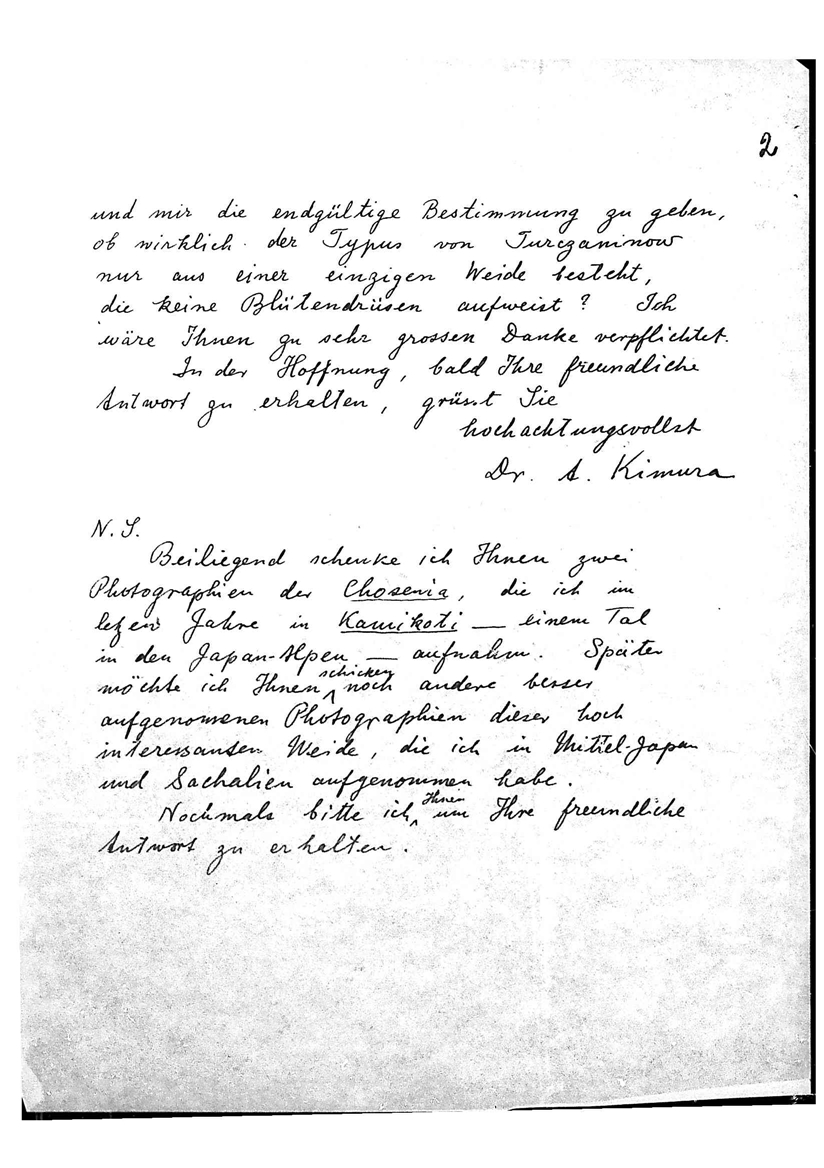 2
und mir die endgültige Bestimmung zu geben,
ob wirklich der Typus von Turczaninow
nur aus einer einzigen Weide besteht,
die keine Blütendrüsen aufweist? Ich
wäre Ihnen zu sehr grossen Danke verpflichtet.
In der Hoffnung, bald Ihre freundliche
Antwort zu erhalten, grüsst Sie
hochachtungsvollst
Dr. A. Kimura
N. S.
Beiliegend schenke ich Ihnen zwei
Photographien der Chosenia, die ich im
letzen Jahre in Kamikoti — einem Tal
in den Japan-Alpen — aufnahm. Später
möchte ich Ihnen schicken noch andere besser
aufgenommenen Photographien dieser hoch
interessanten Weide, die ich in Mittel-Japan
und Sachalien aufgenommen habe.
Nochmals bitte ich Ihnen um Ihre freundliche
Antwort zu erhalten.